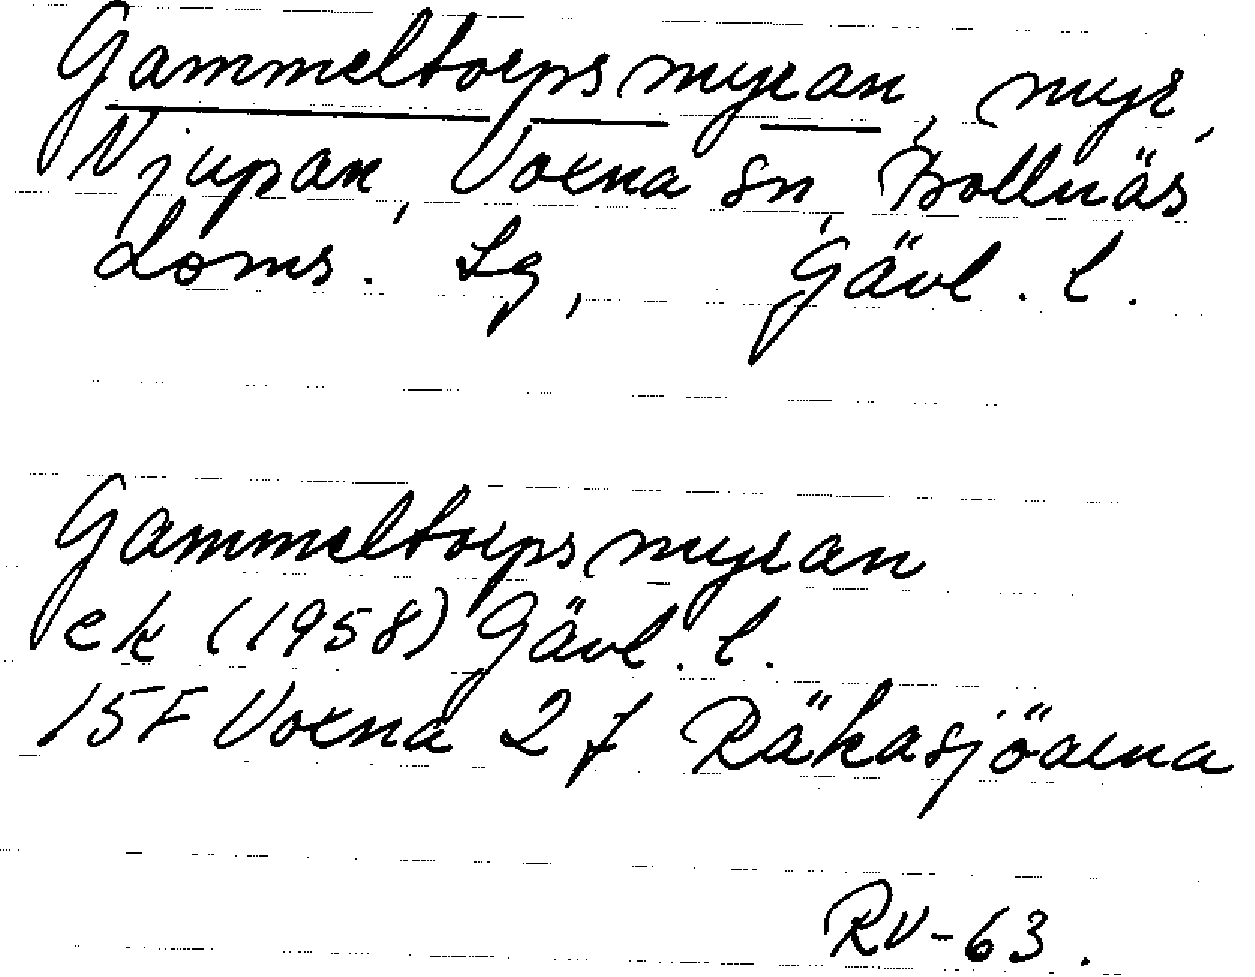 Gammeltorpsmyran, myr,
Njupan, Voxna sn, Bollnäs
doms. Lg, Gävl. l.
Gammeltorpsmyran
ek (1958) Gävl. l.
15F Voxna 2 f Räkasjöarna
RV-63.